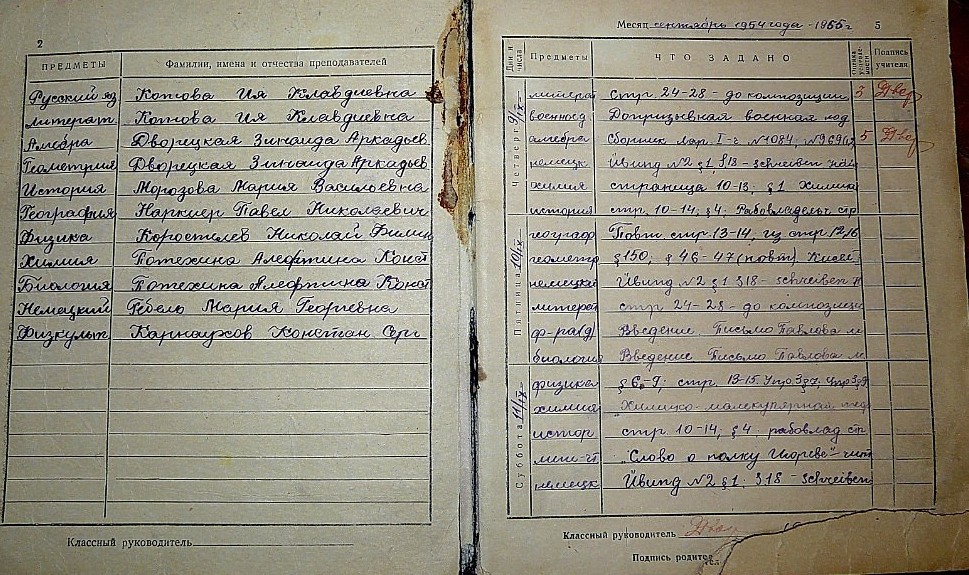 2
ПРЕДМЕТЫ Фамилии, имена и отчества преподавателей
Русский яз Котова Ия Клавдиевна
литерат. Котова Ия Клавдиевна
Алгебра Дворецкая Зинаида Аркадьев
Геометрия Дворецкая Зинаида Аркадьев
История Морозова Мария Васильевна
География Наркиер Павел Николаевич
Физика Коростелев Николай Филип
Химия Потехина Алефтина Конст
Биология Потехина Алефтина Конст
Немецкий Ребель Мария Георгевна
Физкульт Карнаухов Констан Серг
Классный руководитель
Месяц сентябрь 1954 года - 1955 г 5
Дни и числа Предметы ЧТО ЗАДАНО Оценка успеваемости Подпись учителя
Четверг 9/IX
литерат стр. 24-28 - до композиции 3
военное Допризывная военная под
алгебра Сборник Лар I-ч. №1084, 5
немецк №2 §1, §18 - schreiben
химия страница 10-13, §1 Химия
история стр. 10-14; §4; Рабовладельч стр
Пятница 10/IX
географ Повт стр. 13-14, из стр 12,16
геометр §150; §46-47 (повт)
немецкий №2 §1 §18 - schreiben
литерат стр. 24-28 - до композици
ф-ра(д) Введение Письмо Павлова м
биология Введение Письмо Павлова м
Суббота 11/IX
физика §6,-7; стр. 13-15. Упр 3§7, Упр 3§9
химия "Химико-малекулярная тео
истор стр. 10-14; §4: рабовлад стр
"Слово о полку Игореве" - чит
немецк №2 §1; §18 - schreiben
Классный руководитель
Подпись родител